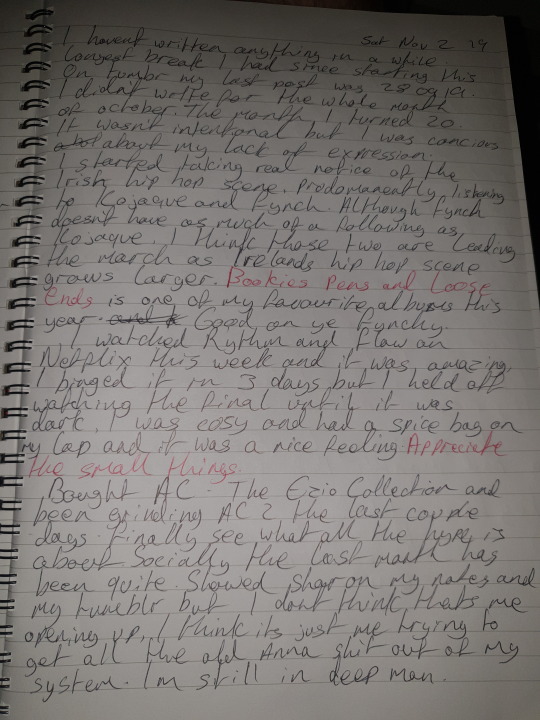 Sat Nov 2 '19
I havent written anything in a while.
Longest break I had since starting this
On tumblr my last post was 28 09 19.
I didnt write for the whole month
of october. The month I turned 20.
It wasn't intentional but I was concious
about my lack of expression.
I started taking real notice of the
Irish hip hop scene. Prodomanently listening
to Kojaque and Fynch. Although Fynch
doesnt have as much of a following as
Kojaque. I think those two are leading
the march as Irelands hip hop scene
grows larger. Bookies Pens and Loose
Ends is one of my favourite albums this
year. Good on ye Fynchy.
I watched Rythm and Flow on
Netflix this week and it was amazing,
I binged it in 3 days but I held off
watching the final until it was
dark. I was cosy and had a spice bag on
my lap and it was a nice feeling. Appreciate
the small things.
Bought AC - The Ezio Collection and
been grinding AC 2 the last copple
days. Finally see what all the hype is
about. Socially the last month has
been quite. Showed Sharon my notes and
my tumeblr but I dont think thats me
opening up, I think its just me trying to
get all the old Anna shit out of my
system. Im still in deep man.